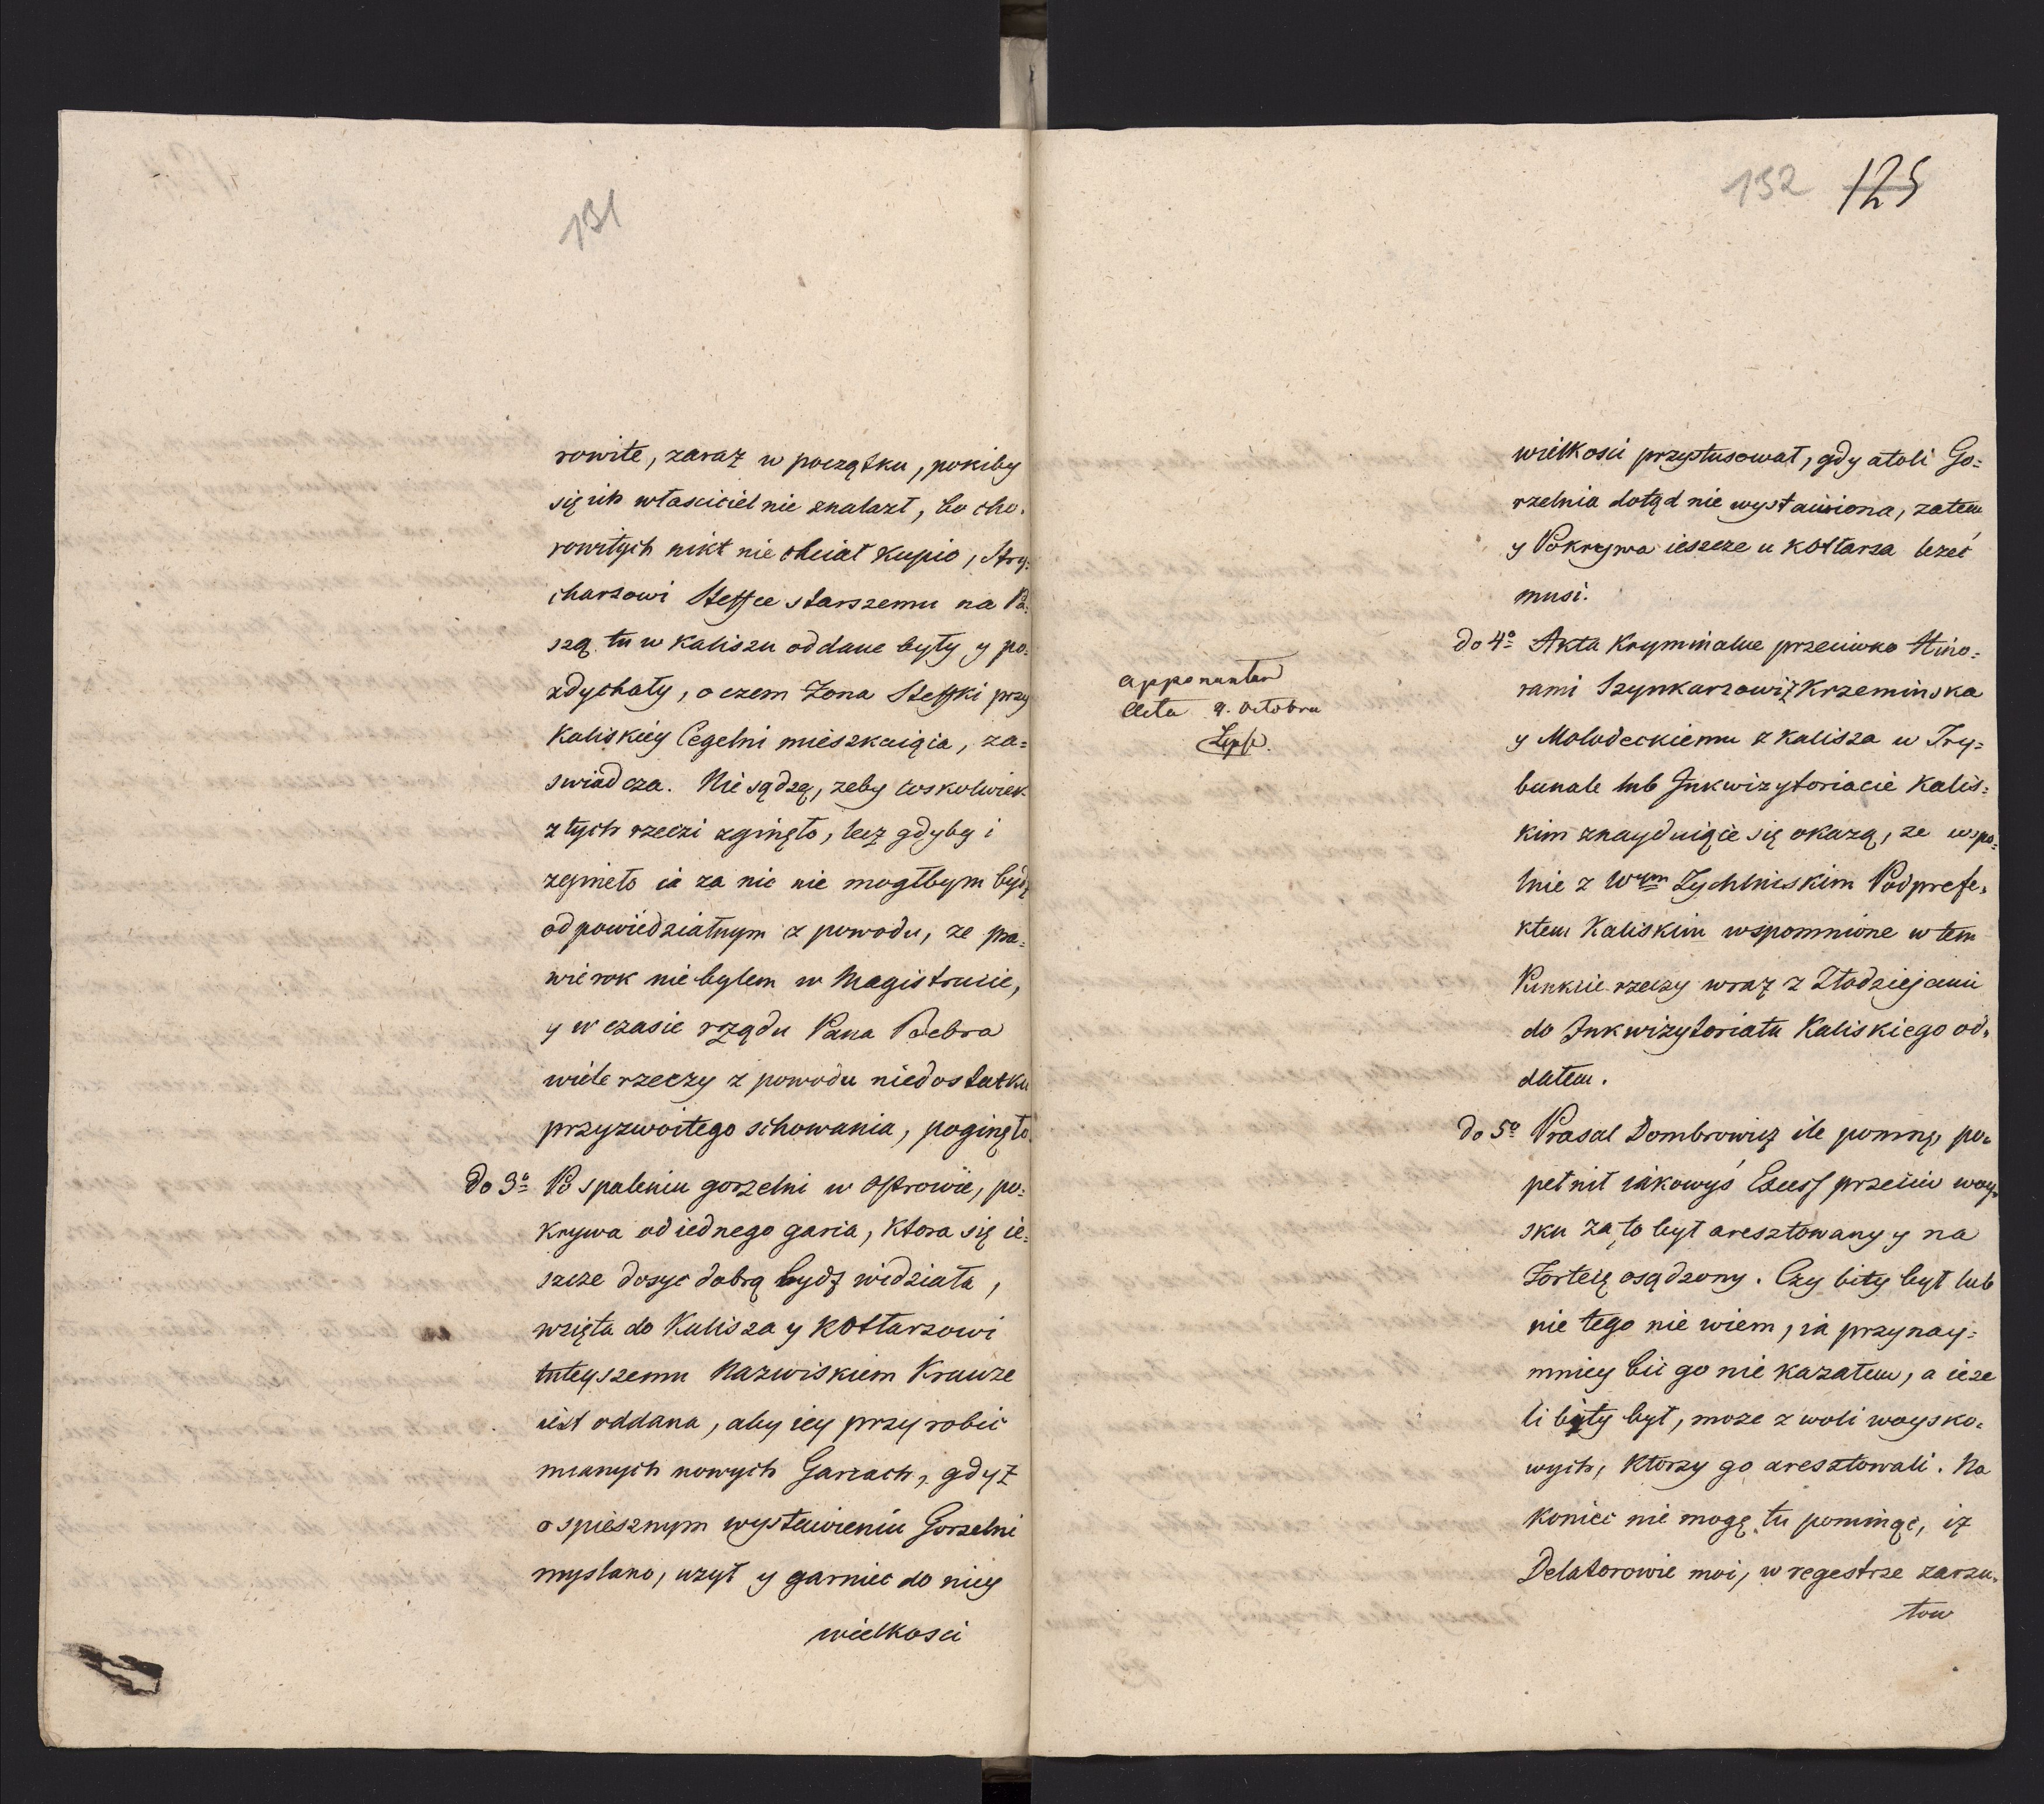 131
rowite, zaraz w początku, pokiby
się ich własciciel nie znalazł, bo cho-
rowitych nikt nie chciał kupic, Stry-
charzowi Steffce starszemu na Pa-
szą tu w Kaliszu oddane były y po-
zdychały, o czem Zona Steffki przy
Kaliskiey Cegelni mieszkaiąca, za=
swiadcza. Nie sądzę, zeby coskolwiek
z tych rzeczi zginęło, lecz gdyby i
zgineło ia za nic nie mogłbym bydz
odpowiedziałnym z powodu, ze pra=
wie rok nie bylem w Magistracie,
y w czasie rządu Pana Bebra
wiele rzeczy z powodu niedostatku
przyzwoitego schowania, poginęło.
do 3o Po spaleniu gorzelni w Ostrowie, po=
krywa od iednego garca, ktora się ie=
szcze dosyc dobrą bydz widziała,
wzięta do Kalisza y Kotlarzowi
tuteyszemu Nazwiskiem Krauze
iest oddana, aby iey przy robic
mianych nowych Garcach, gdyz
o spiesznym wystawieniu Gorzelni
myslano, uzył y garniec do niey
wielkosci
132 125
wielkosci przystusował, gdy atoli Go=
rzelnia dotąd nie wystawiona, zatem
y Pokrywa ieszcze u Kotlarza lezeć
musi.
do 4o Akta Kryminalne przeciwko Aktno=
rami Szynkarzowiz Krzeminska
y Molodeckiemu z Kalisza w Try=
bunale lub Inkwizytoriacie Kalis=
kim znayduiące się okazą, ze wspo=
lnie z Wym Zychlinskim Podprefe=
ktem Kaliskim wspomnione w tem
Punkcie rzeczy wraz z Złodziejami
do Inkwizytoriatu Kaliskiego od=
dałem.
apponantur
Acta 9. Octobru
do 5o Prasal Dombrowicz ile pomnę, po=
pełnił iakowyś Excess przeciw woy=
sku za to był aresztowany y na
Fortecę osądzony. Czy bity był lub
nie tego nie wiem, ia przynay=
mniey bic go nie kazałem, a ieze
li bity był, moze z woli woysko=
wych, ktorzy go aresztowali. Na
koniec nie mogę tu pominąc, iz
Delatorowie moi, w regestrze zarzu=
tow